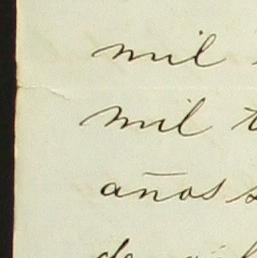 mil
mil t
años s
de